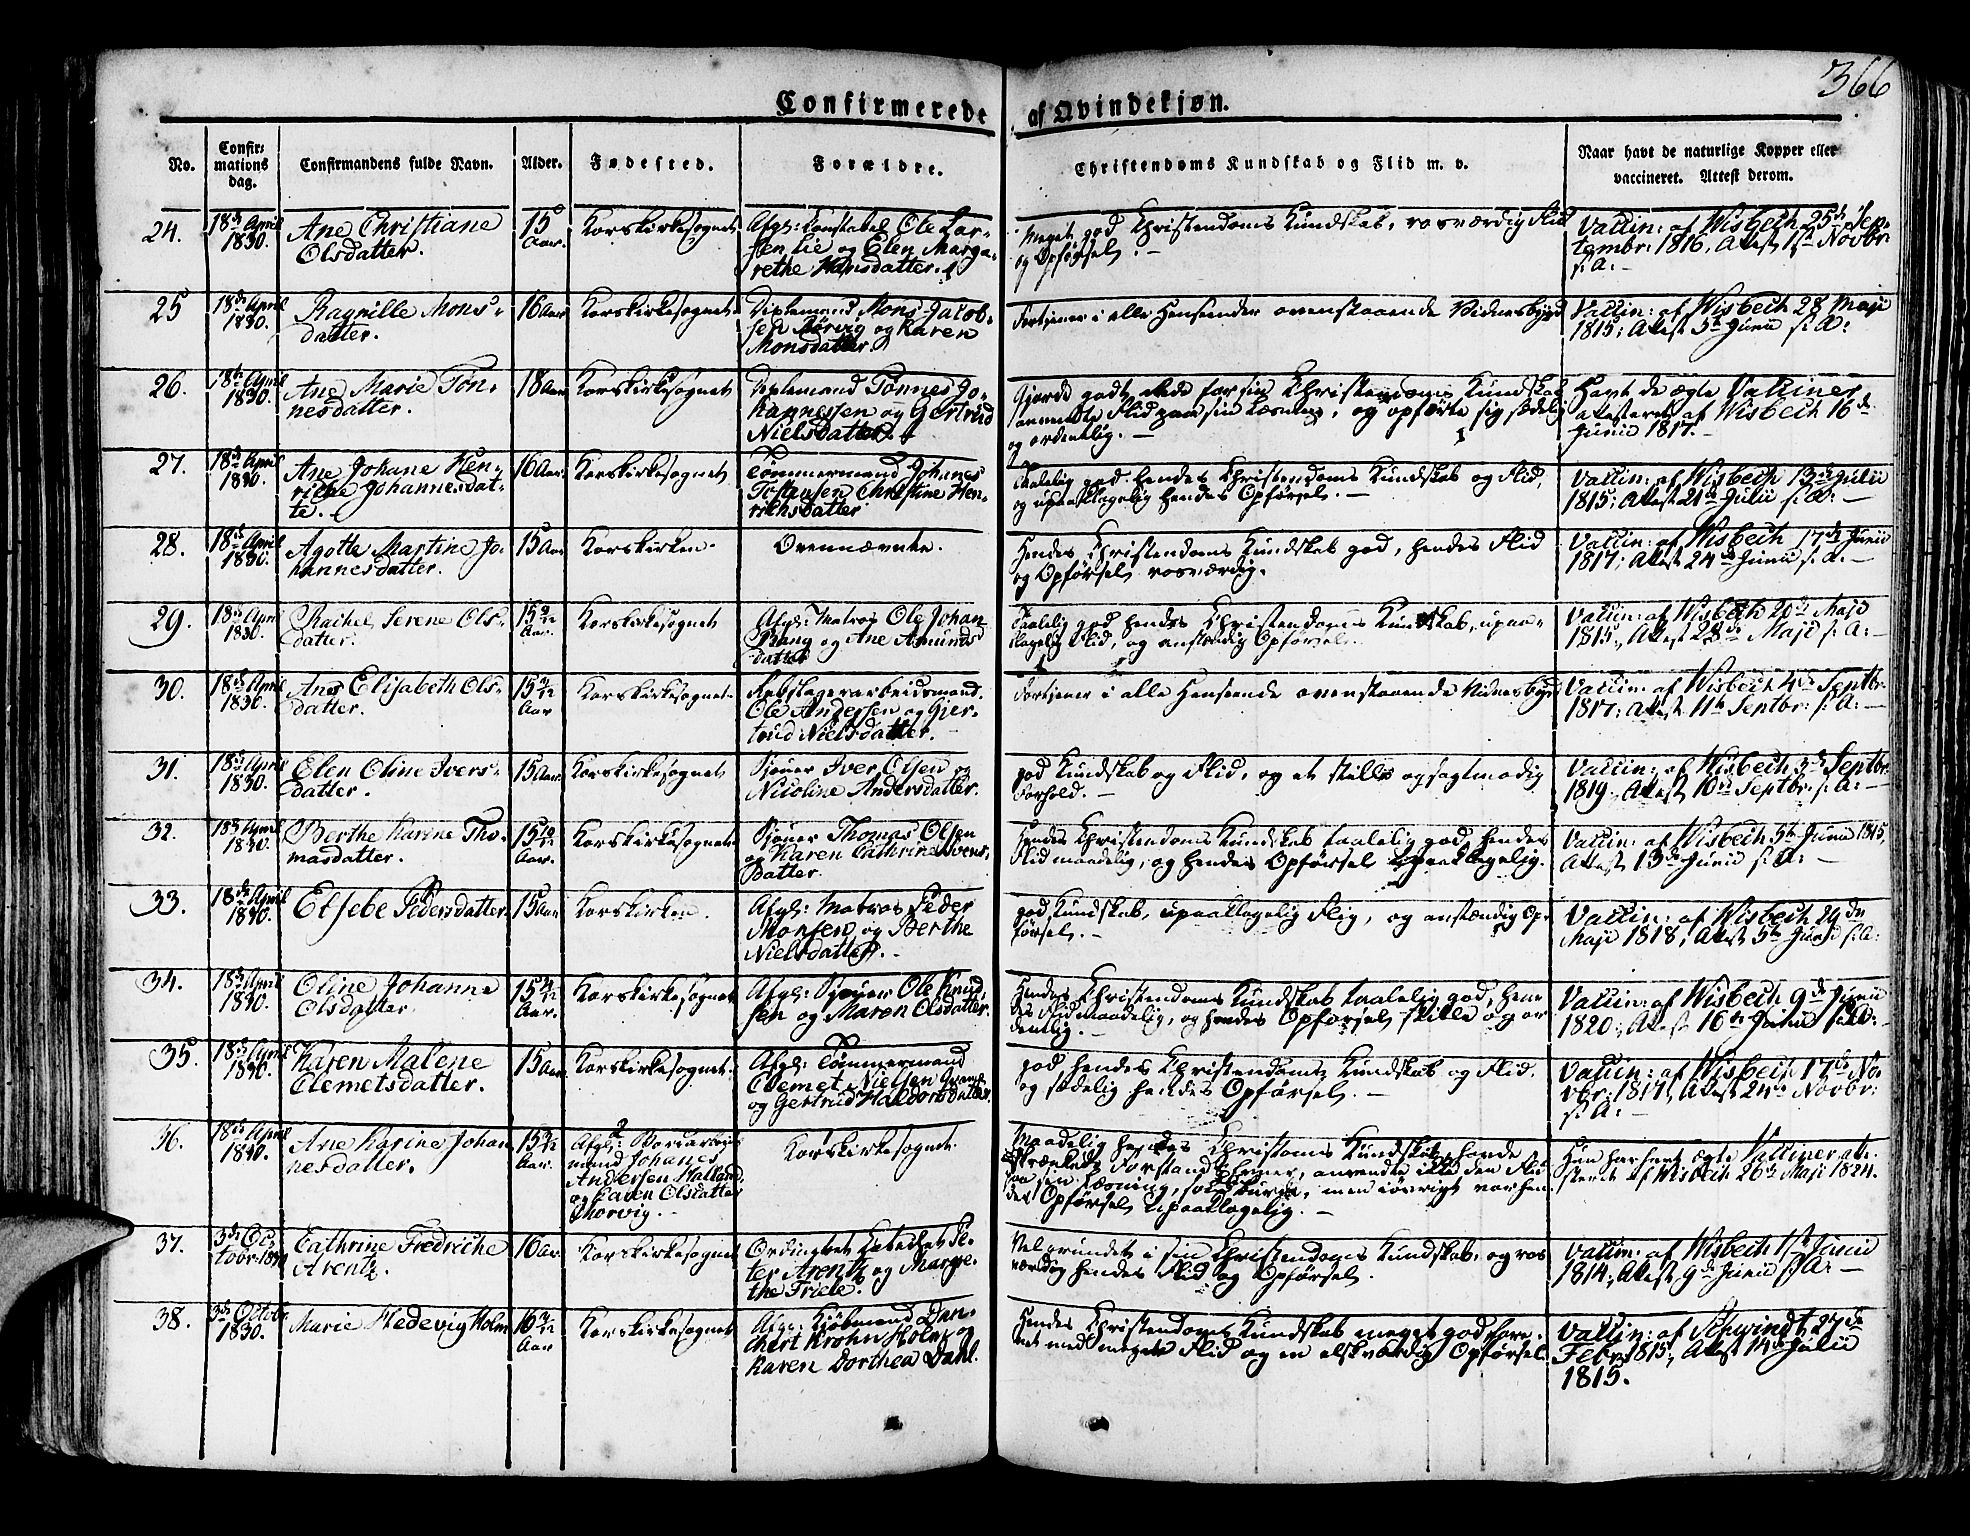 366
Confirmerede af Qvindekjøn.
No.
Confir-
mations
dag.
Confirmandens fulde Navn.
Alder.
Fødested.
Forældre.
Christendoms Kundskab og Flid m. v.
Naar havt de naturlige Kopper eller
vaccineret. Attest derom.
24.
18de April
1830.
Ane Christiane
Olsdatter.
15
Aar.
Korskirkesognet
Afgl: Konstabel Ole Lar-
sen Lie og Elen Marga-
rethe Hansdatter.
Meget god Christendoms Kundskab, rosværdig Flid
og Opførsel. -
Vaccin: af Wisbech 25de Sep-
tembr: 1816, Attest 1ste Novbr:
s: A: -
25
18de April
1830.
Ragnille Mons-
datter.
16 Aar
Korskirkesognet
Mons Jacob-
sen og Karen
Monsdatter.
Fortjener i alle Henseender ovenstaaende Vidnesbyrd
Vaccin: af Wisbech 28 Maji
1815; Attest 5te Junii s: A:
26.
18de April
1830.
Ane Marie Tøn-
nesdatter.
18 Aar
Korskirkesognet
Tønnes Jo-
hannessen og Gertrud
Nielsdatter.
Gjorde godt rede for sin Christendoms Kundskab
anvendte Flid paa sin Læsning, og opførte sig sædelig
og ordentlig. -
Havt de ægte Vacciner
attesteret af Wisbech 16de
Junii 1817. -
27.
18de April
1830.
Ane Johane Hen-
riche Johannesdat-
te.
16 Aar.
Korskirkesognet
Tømmermand Johanes
Tostensen Christine Hen-
richsdatter
Taalelig god hendes Christendoms Kundskab og Flid,
og upaaklagelig hendes Opførsel. -
Vaccin: af Wisbech 13de Julii
1815; Attest 21de Julii s: A: -
28.
18de April
1830.
Agotte Martine Jo-
hannesdatter.
15 Aar
Korskirken.
Ovennævnte.
Hendes Christendoms Kundskab god, hendes Flid
og Opførsel rosværdig.
Vaccin: af Wisbech 17de Junii
1817; Attest 24de Junii s: A: -
29.
18de April
1830.
Rachel Serene Ols-
datter.
15
Aar.
Korskirkesognet
Afgl: Matros Ole Johan
Bang og Ane Asmunds
datter
Taalelig god hendes Christendoms Kundskab, upaa-
klagelig Flid, og anstændig Opførsel.
Vaccin: af Wisbech 20de Maji
1815, Attest 28de Maji s: A: -
30.
18de April
1830.
Ane Elisabeth Ols-
datter.
15 3/12
Aar
Korskirkesognet.
Rebslagerarbeidsmand
Ole Andersen og Gjer-
trud Nielsdatter.
Fortjener i alle Henseende ovenstaaende Vidnesbyrd
Vaccin: af Wisbech 4de Septbr:
1817; Attest 11te Septbr: s: A: -
31.
18de April
1830.
Elen Oline Ivers-
datter.
15 Aar.
Korskirkesognet
Iver Olsen og
Nicoline Andersdatter.
god Kundskab og Flid, og et stille og sagtmodig
Forhold. -
Vaccin: af Wisbech 3de Septbr:
1819, Attest 10de Septbr: s: A: -
32.
18de April
1830.
Berthe Karine Tho-
masdatter.
15 10/12
Aar.
Korskirkesognet
Thomas Olsen
og Karen Cathrine Ivers-
datter.
Hendes Christendoms Kundskab taalelig god, hendes
Flid maadelig, og hendes Opførsel upaaklagelig.
Vaccin: af Wisbech 5te Junii 1815,
Attest 13de Junii s: A: -
33.
18de April
1830.
Elsebe Pedersdatter.
15 Aar
Korskirken.
Afgl: Matros Peder
Monsen og Berthe
Nielsdatter. -
god Kundskab, upaaklagelig Flig, og anstændig Op-
førsel. -
Vaccin: af Wisbech 29de
Maji 1818, Attest 5te Junii s: A:
34.
18de April
1830.
Oline Johanne
Olsdatter.
15 4/12
Aar.
Korskirkesognet
Afgl: Ole Knud-
sen og Maren Olsdatter.
Hendes Christendoms Kundskab taalelig god, hen-
des Flid maadelig, og hendes Opførsel stille og or
dentlig. -
Vaccin: af Wisbech 9de Junii
1820, Attest 16te Junii s: A:
35.
18de April
1830.
Karen Malene
Clemetsdatter.
15 Aar
Korskirkesognet.
Afgl: Tømmermand
Clemet Nielsen
og Gertrud Halvorsdatter.
god hendes Christendoms Kundskab og Flid.
og sædelig hendes Opførsel. -
Vaccin: af Wisbech 17de No-
vbr: 1817, Attest 24de Novbr:
s: A: -
36.
18de April
1830.
Ane Karine Johan
nesdatter.
15 3/12
Aar.
Afgl:
mand Johanes
Andersen Halland
og Karen Olsdatter
Thorvig. -
Korskirkesognet.
Maadelig hendes Christoms Kundskab, hendes
Forstand
Læsning, men iøvrigt var hen-
des Opførsel upaaklagelig. -
Hun har havt ægte Vacciner at-
steret af Wisbech 26de Maji 1824.
37.
3de Oc-
tobr: 1830
Cathrine Fredriche
Arentz.
16 Aar.
Korskirkesognet
Ordineret Catechet Pe-
ter Arentz og Marge-
the Friele.
Vel grundet i sin Christendoms Kundskab, og ros
værdig hendes Flid og Opførsel.
Vaccin: af Wisbech 1ste Junii
1814, Attest 9de Junii s: A: -
38.
3de Octobr:
1830.
Marie Hedevig Holm
16 3/12
Aar
Korskirkesognet
Afgl: Kjøbmand Dan-
chert Krohn Holm og
Karen Dorthea Dahl.
Hendes Christendoms Kundskab meget god fore-
net med megen Flid og en elskværdig Opførsel.
Vaccin: af Schwindt 27de
Febr: 1815, Attest 14de Julii
1815.